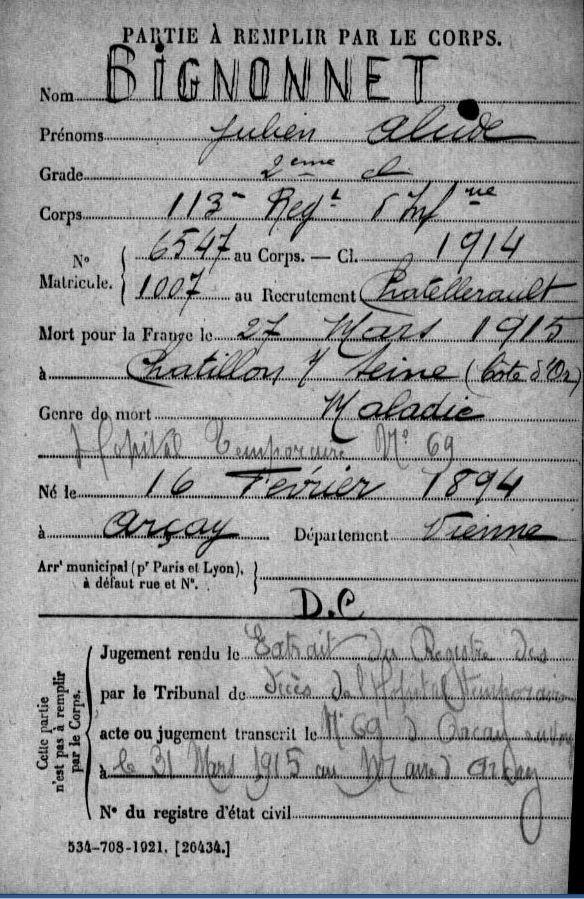 PARTIE À REMPLIR PAR LE CORPS.
Nom BIGNONNET
Prénoms Julien Alude
Grade 2ème cl
Corps 113e Regt d'Infrie
N° Matricule. 6547 au Corps. — Cl. 1914
1007 au Recrutement Chatellerault
Mort pour la France le 27 Mars 1915
à Chatillon s/ Seine (Cote d'Or)
Genre de mort Maladie
Hopital Temporaire N° 69
Né le 16 Février 1894
à Arçay Département Vienne
Arrt municipal (pr Paris et Lyon),
à défaut rue et N°.
D.C
Cette partie n'est pas à remplir par le Corps.
Jugement rendu le Extrait du Registre des
par le Tribunal de Décès de l'Hopital Temporaire
acte ou jugement transcrit le N° 69 à Arçay envoyé
à le 31 Mars 1915 au Maire d'Arçay
N° du registre d'état civil
534-708-1921. [26434.]